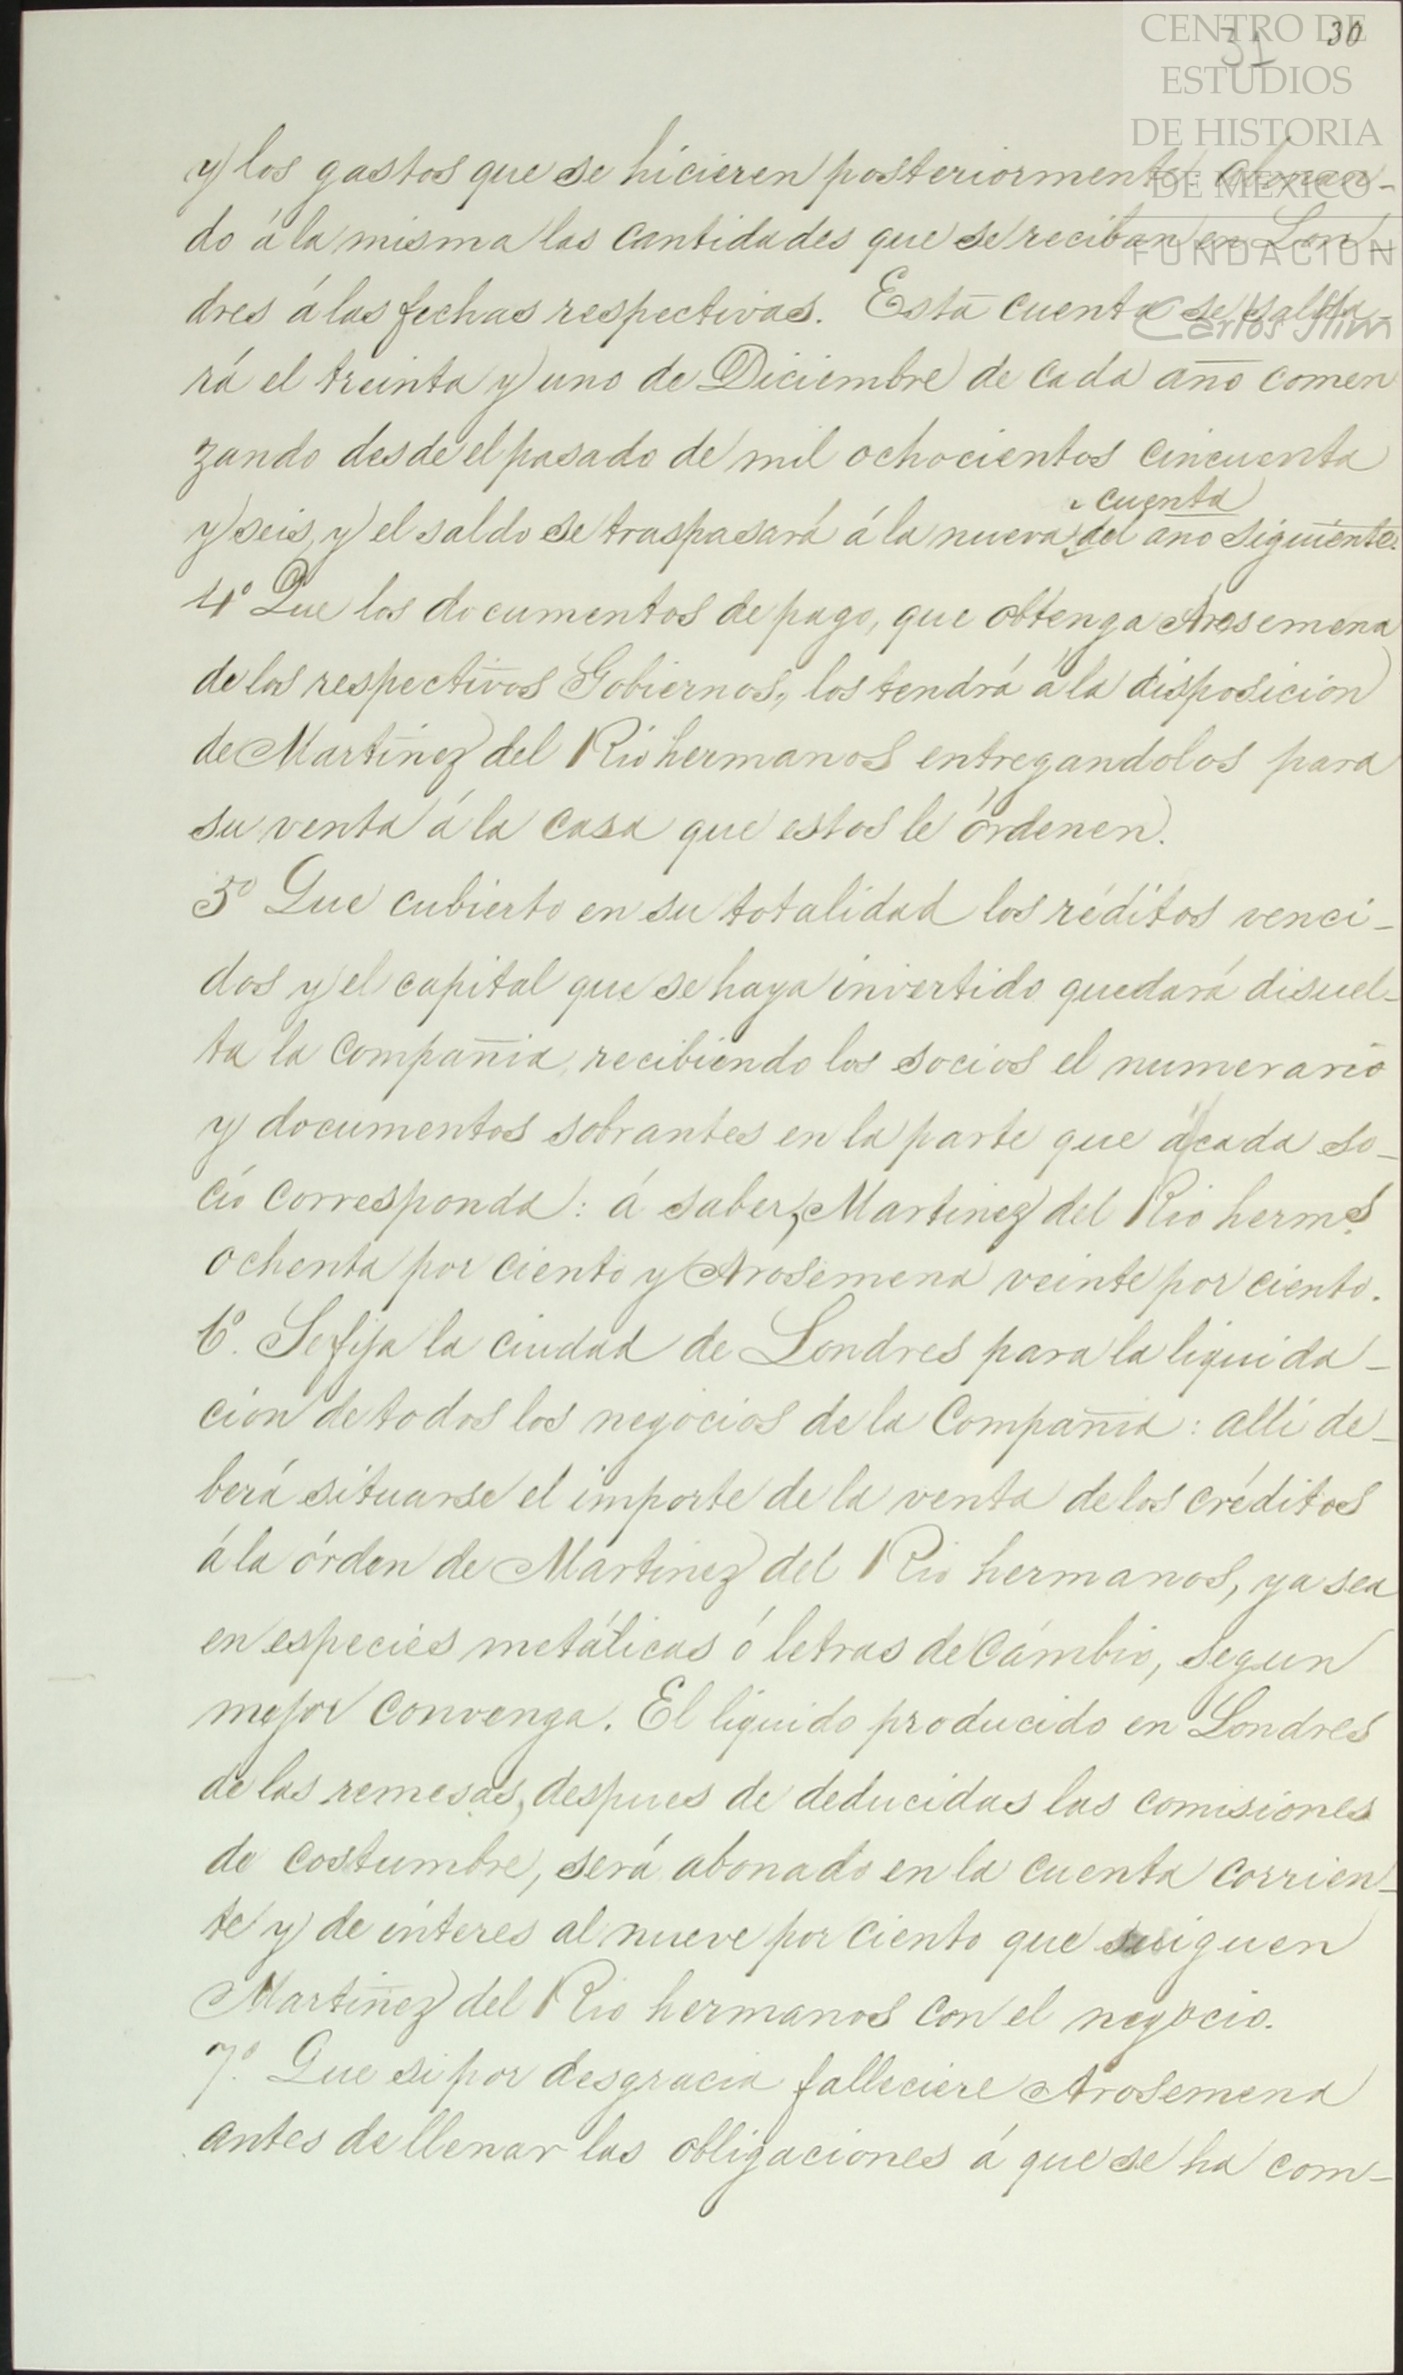 CENTRO DE
ESTUDIOS
DE HISTORIA
DE MÉXICO
FUNDACIÓN
Carlos Slim
31 30
y los gastos que se hicieren posteriormente abonan-
do á la misma las cantidades que se reciban en Lon-
dres á las fechas respectivas. Esta cuenta se salda-
rá el treinta y uno de Diciembre de cada año comen
zando desde el pasado de mil ochocientos cincuenta
cuenta
y seis, y el saldo se traspasará á la nueva del año siguiente.
4º Que los documentos de pago, que obtenga Arosemena
de los respectivos Gobiernos, los tendrá á la disposición
de Martinez del Rio hermanos entregandolos para
su venta á la casa que estos le órdenen.
5º Que cubierto en su totalidad los réditos venci-
dos y el capital que se haya invertido quedará disuel-
ta la Compañia, recibiendo los socios el numerario
y documentos sobrantes en la parte que á cada so-
cio corresponda: á saber, Martinez del Rio herms.
ochenta por ciento y Arosemena veinte por ciento.
6º. Se fija la ciudad de Londres para la liquida-
cion de todos los negocios de la Compañia: alli de-
berá situarse el importe de la venta de los créditos
á la órden de Martinez del Rio hermanos, ya sea
en especies metálicas ó letras de Cámbio, segun
mejor convenga. El liquido producido en Londres
de las remesas, despues de deducidas las comisiones
de costumbre, será abonado en la cuenta corrien-
te y de interes al nueve por ciento que siguen
Martinez del Rio hermanos con el negocio.
7º. Que si por desgracia falleciere Arosemena
antes de llenar las obligaciones á que se ha com-